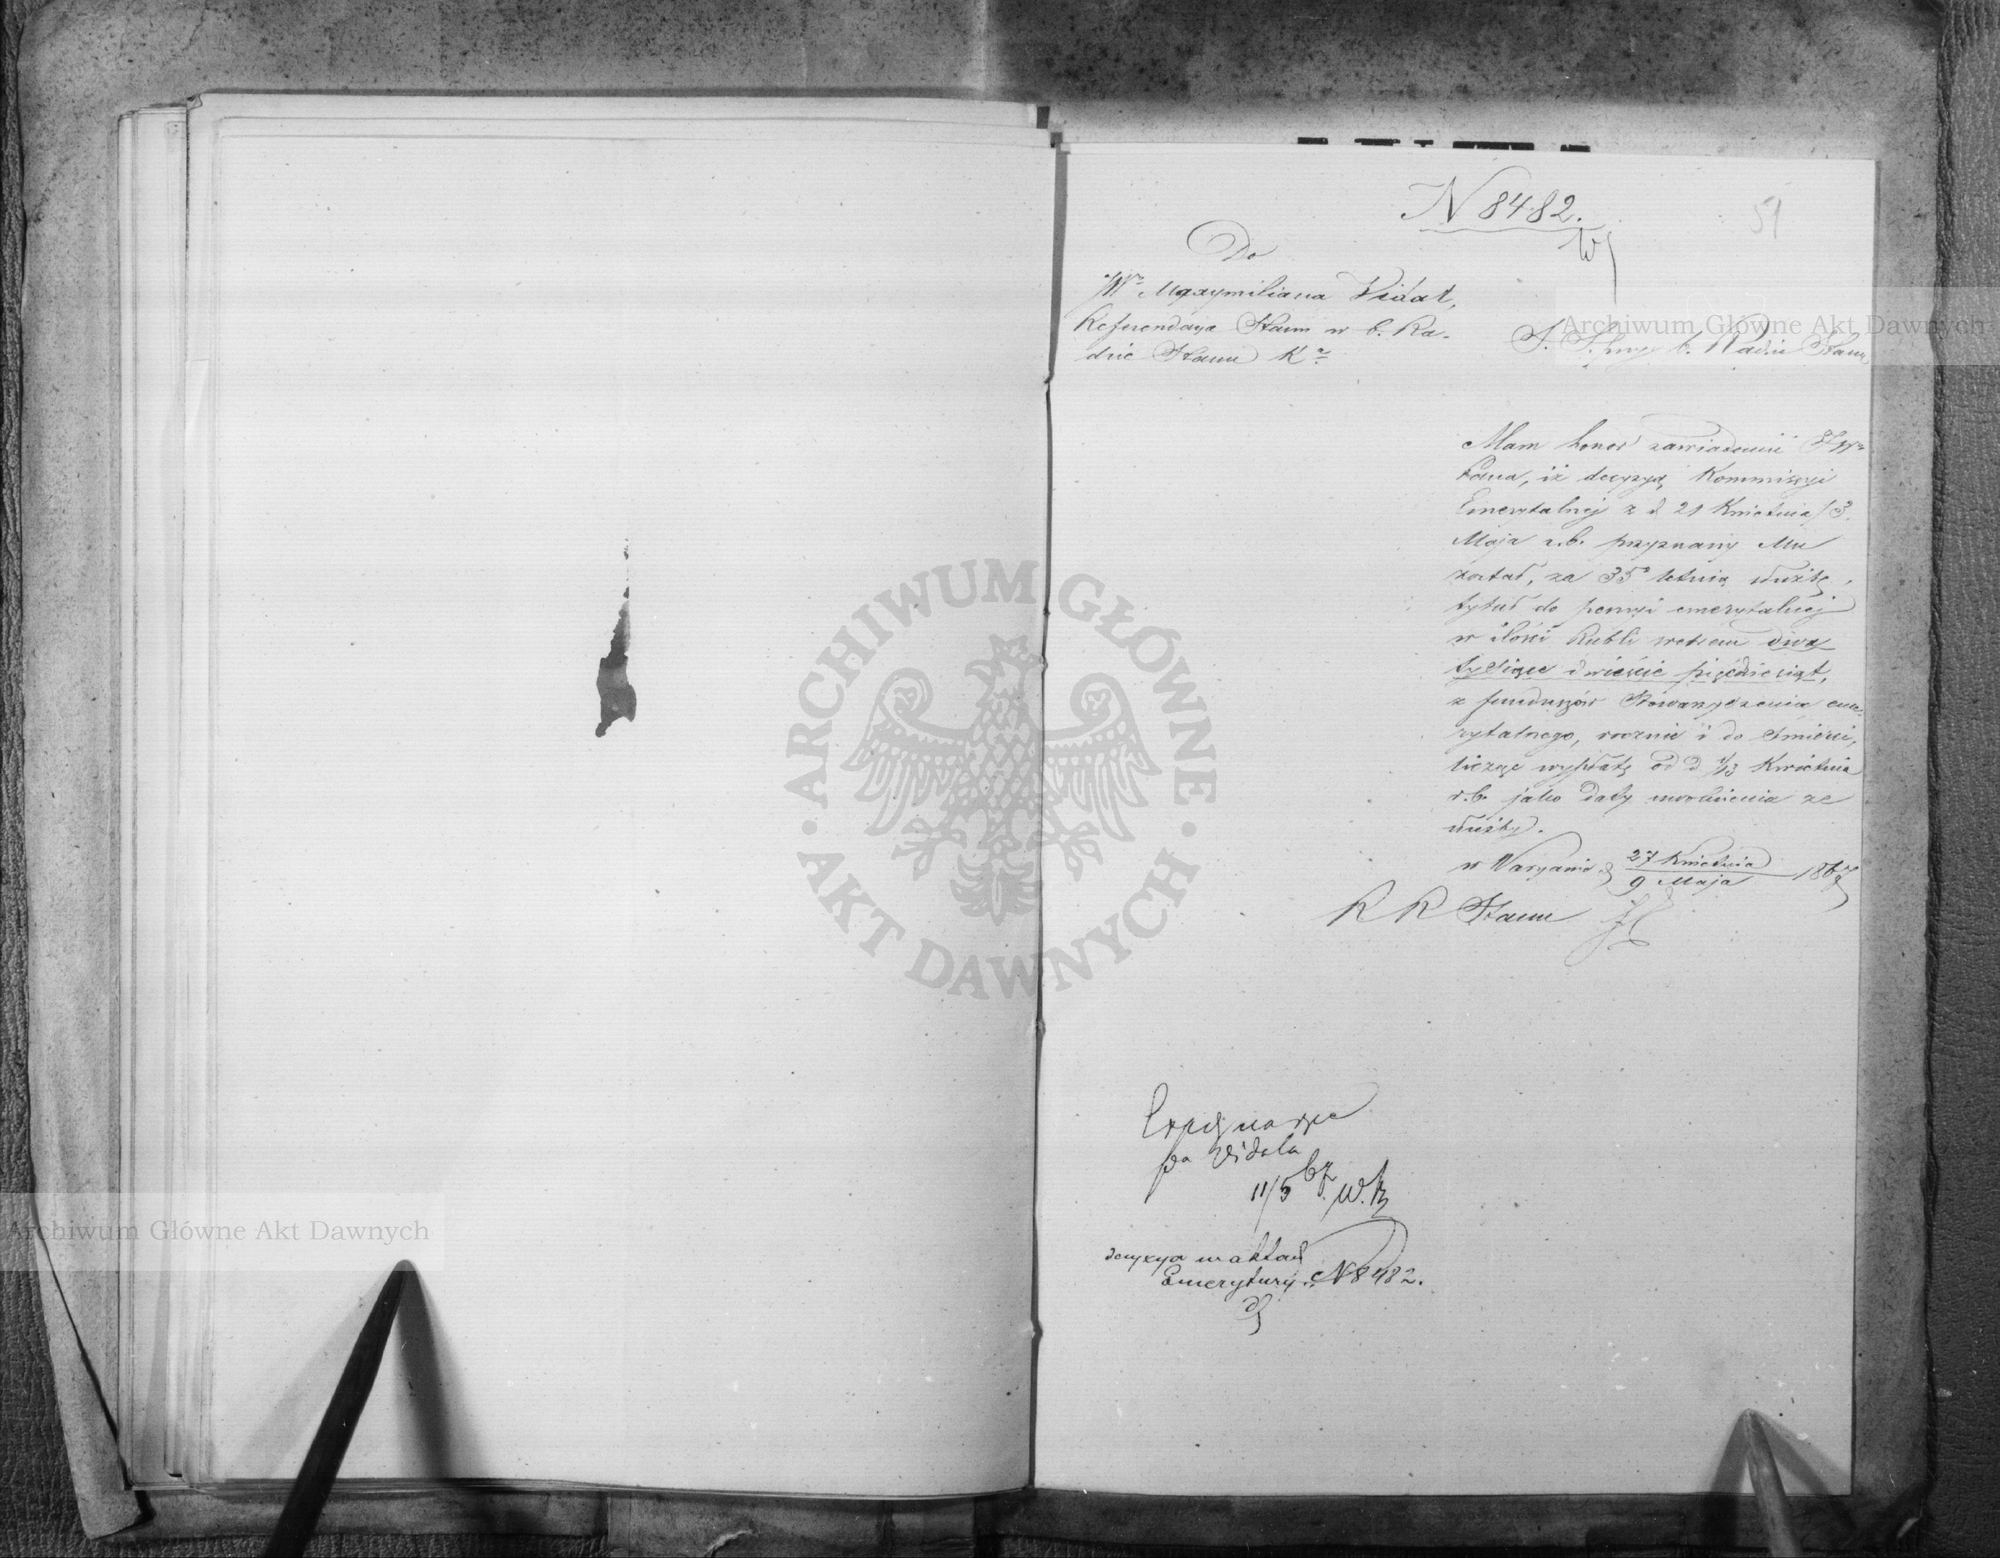 N 8482.
51
Do
JW° Maxymiliana Vidal,
Referendarza Stanu w b. Ra-
dzie Stanu K°
b. Radzie Stanu
Mam honor zawiadomić JW°
Pana, iż decyzyą Kommissyi
Emerytalnej z d 21 Kwietnia/3
Maja r.b. przyznany Mu
został, za 35° letnią służbę,
tytuł do pensyi emerytalnej
w ilości Rubli srebrem dwa
tysiące dwieście pięćdziesiąt,
z funduszów Stowarzyszenia eme-
rytalnego, rocznie i do śmierci,
licząc wypłatę od d 1/13 Kwietnia
r.b. jako daty uwolnienia ze
służby.
w Warszawie d 27 Kwietnia / 9 Maja 1867
R R Stanu
Vidala
11/5 67.
decyzya w aktach
Emerytury N 8482.
ARCHIWUM GŁÓWNE
· AKT DAWNYCH ·
Archiwum Główne Akt Dawnych
Archiwum Główne Akt Dawnych